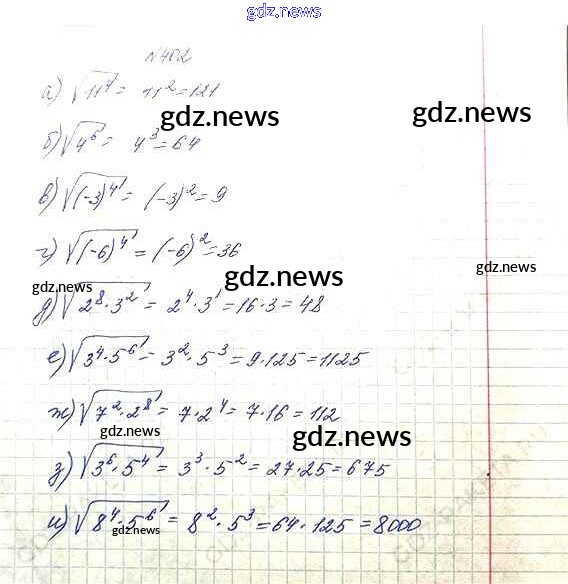 gdz.news
№402
а) √11⁴ = 11² = 121
gdz.news gdz.news
б) √4⁶ = 4³ = 64
в) √(-3)⁴ = (-3)² = 9
г) √(-6)⁴ = (-6)² = 36
gdz.news gdz.news gdz.news
д) √2⁸·3² = 2⁴·3¹ = 16·3 = 48
е) √3⁴·5⁶ = 3²·5³ = 9·125 = 1125
ж) √7²·2⁸ = 7·2⁴ = 7·16 = 112
gdz.news gdz.news
з) √3⁶·5⁴ = 3³·5² = 27·25 = 675
и) √8⁴·5⁶ = 8²·5³ = 64·125 = 8000
gdz.news